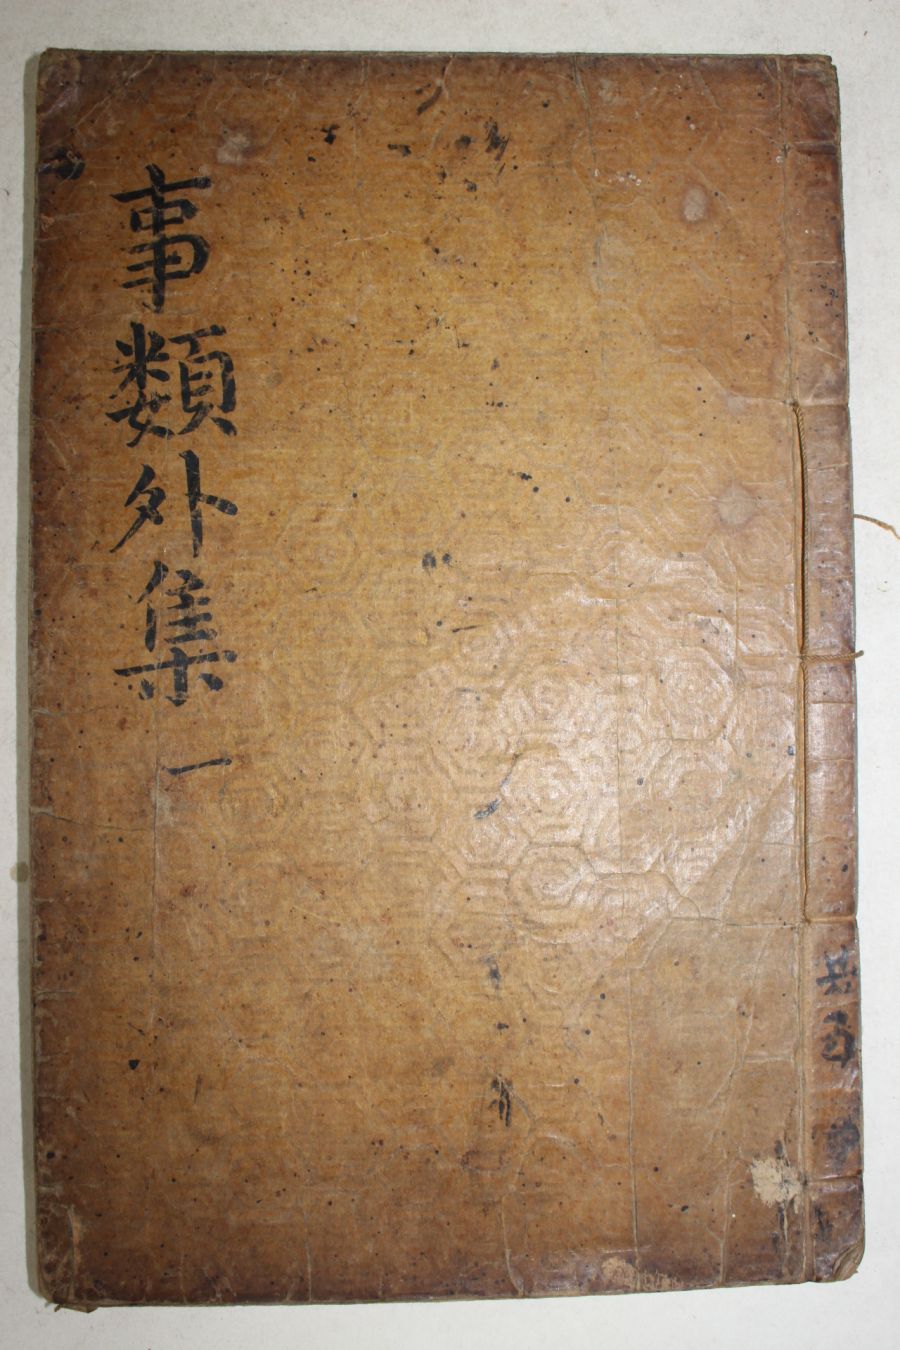 事類外集 一
共